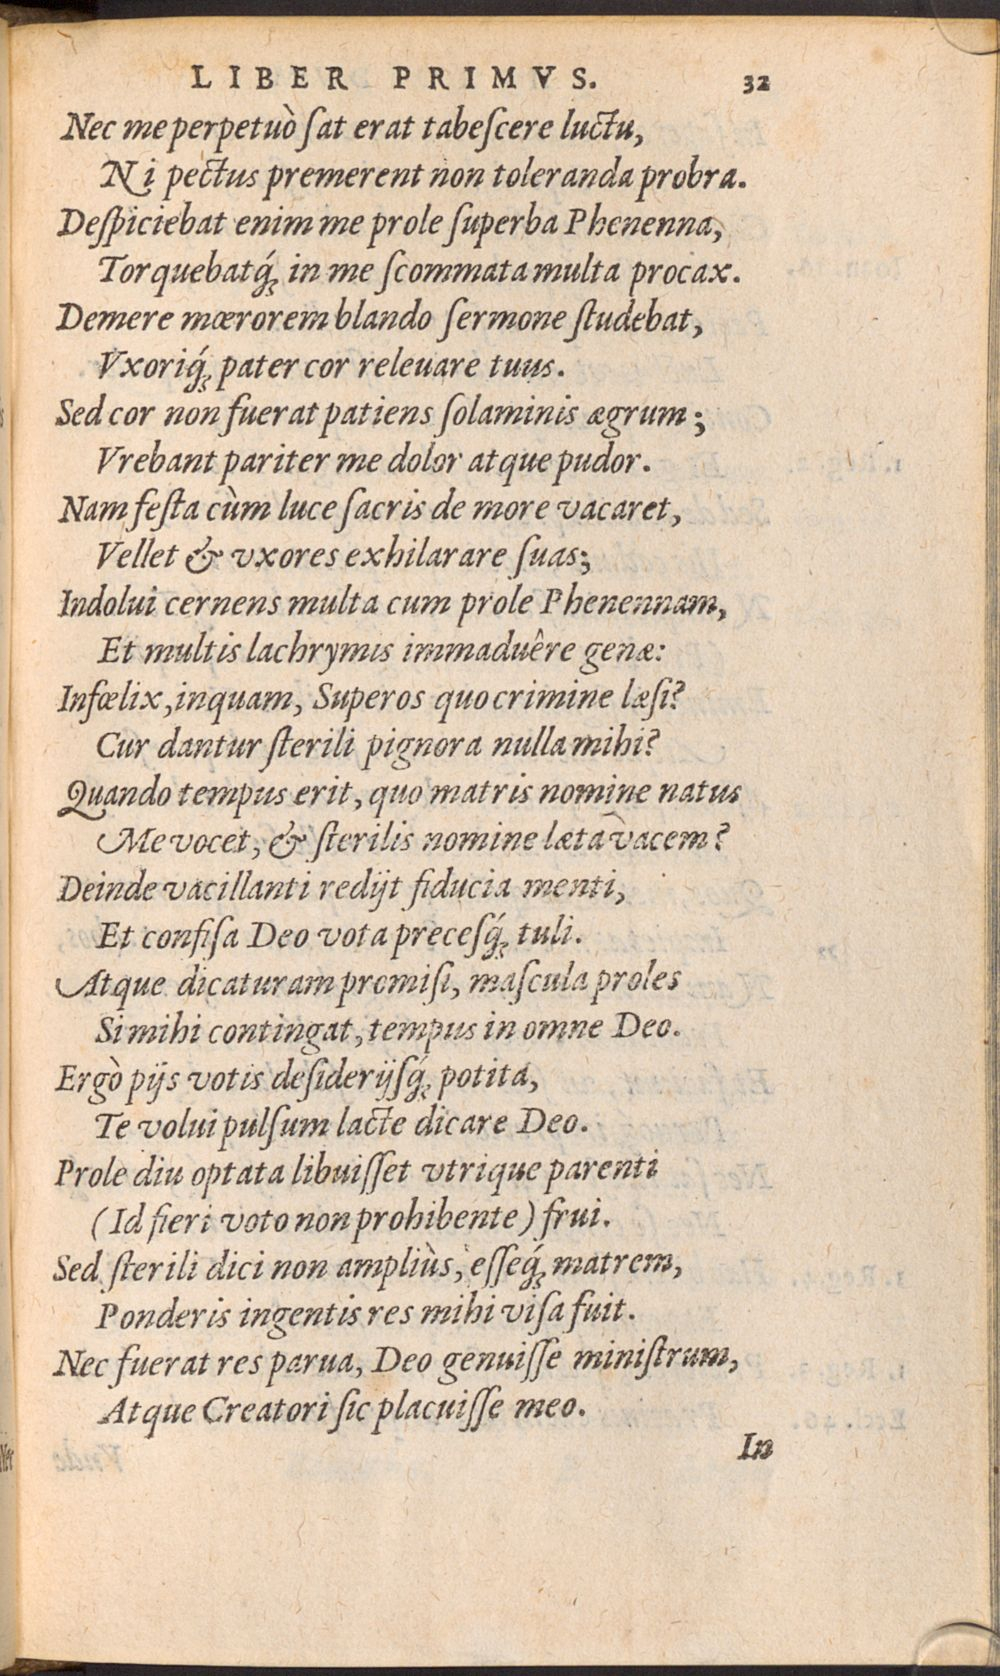 LIBER PRIMVS. 32
Nec me perpetuò ſat erat tabeſcere luctu,
Ni pectus premerent non toleranda probra.
Deſpiciebat enim me prole ſuperba Phenenna,
Torquebatq́ꝫ in me ſcommata multa procax.
Demere mœrorem blando ſermone ſtudebat,
Vxoriq́ꝫ pater cor releuare tuus.
Sed cor non fuerat patiens ſolaminis ægrum;
Vrebant pariter me dolor atque pudor.
Nam feſta cùm luce ſacris de more vacaret,
Vellet & vxores exhilarare ſuas;
Indolui cernens multa cum prole Phenennam,
Et multis lachrymis immaduêre genæ:
Infœlix, inquam, Superos quo crimine læſi?
Cur dantur ſterili pignora nulla mihi?
Quando tempus erit, quo matris nomine natus
Me vocet, & ſterilis nomine læta vacem?
Deinde vacillanti redijt fiducia menti,
Et confiſa Deo vota preceſq́ꝫ tuli.
Atque dicaturam promiſi, maſcula proles
Si mihi contingat, tempus in omne Deo.
Ergò pijs votis deſiderijſq́ꝫ potita,
Te volui pulſum lacte dicare Deo.
Prole diu optata libuiſſet vtrique parenti
(Id fieri voto non prohibente) frui.
Sed ſterili dici non ampliùs, eſſeq́ꝫ matrem,
Ponderis ingentis res mihi viſa fuit.
Nec fuerat res parua, Deo genuiſſe miniſtrum,
Atque Creatori ſic placuiſſe meo.
In